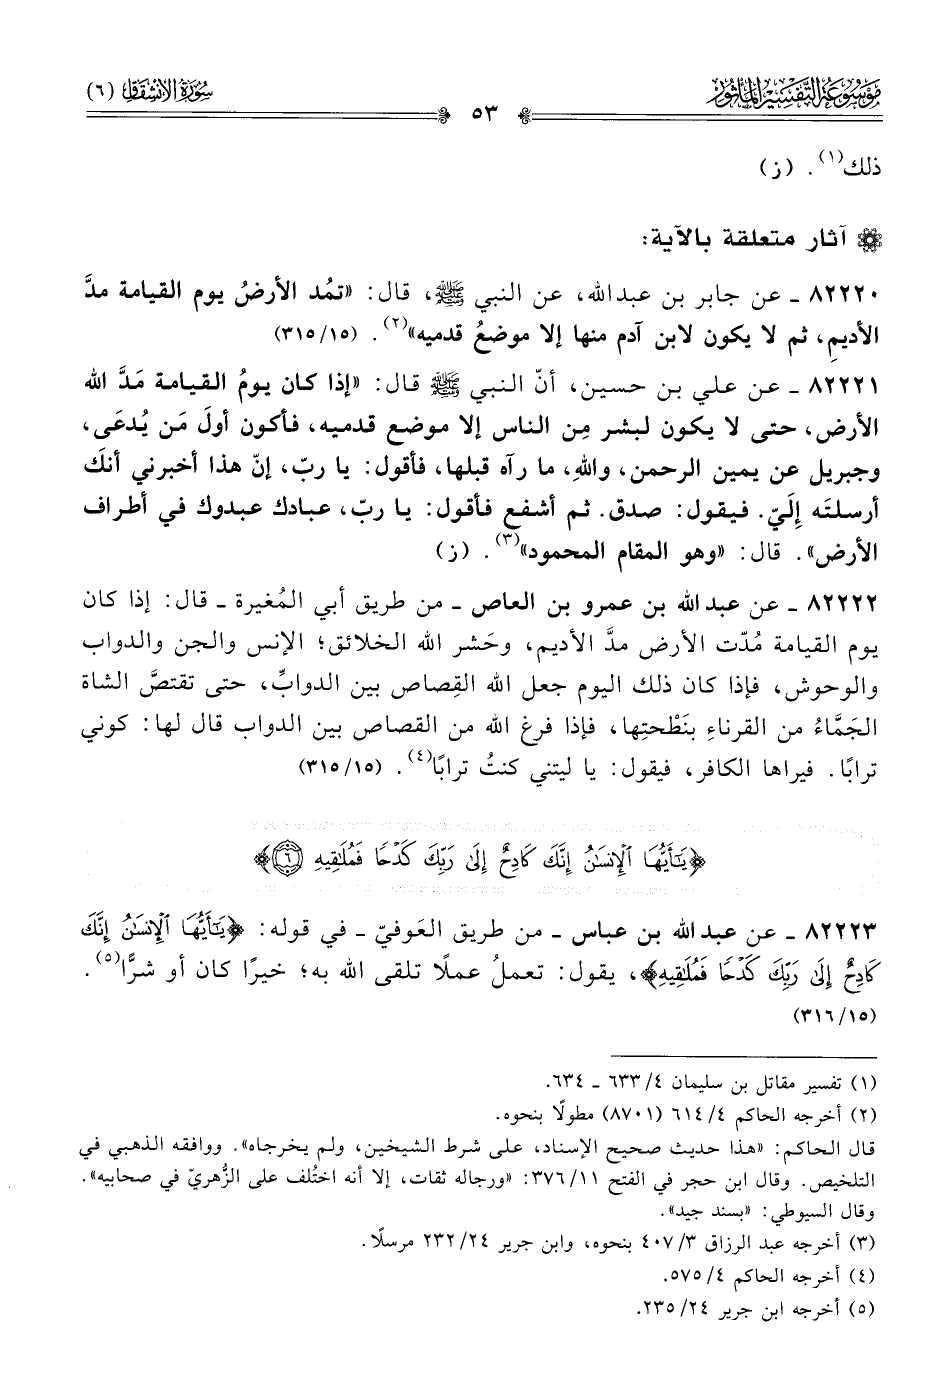 موسوعة التفسير المأثور
٥٣
سورة الانشقاق (٦)
ذلك(١). (ز)
آثار متعلقة بالآية:
٨٢٢٢٠ ـ عن جابر بن عبدالله، عن النبي ﷺ، قال: «تمُد الأرضُ يوم القيامة مدَّ
الأديمِ، ثم لا يكون لابن آدم منها إلا موضعُ قدميه»(٢). (٣١٥/١٥)
٨٢٢٢١ ـ عن علي بن حسين، أنّ النبي ﷺ قال: «إذا كان يومُ القيامة مَدَّ الله
الأرض، حتى لا يكون لبشر مِن الناس إلا موضع قدميه، فأكون أولَ مَن يُدعَى،
وجبريل عن يمين الرحمن، واللهِ، ما رآه قبلها، فأقول: يا ربّ، إنّ هذا أخبرني أنكَ
أرسلتَه إِلَيّ. فيقول: صدق. ثم أشفع فأقول: يا ربّ، عبادك عبدوك في أطراف
الأرض». قال: «وهو المقام المحمود»(٣). (ز)
٨٢٢٢٢ ـ عن عبدالله بن عمرو بن العاص ـ من طريق أبي المُغيرة ـ قال: إذا كان
يوم القيامة مُدّت الأرض مدَّ الأديم، وحَشر الله الخلائق؛ الإنس والجن والدواب
والوحوش، فإذا كان ذلك اليوم جعل الله القِصاص بين الدوابِّ، حتى تقتصَّ الشاة
الجَمَّاءُ من القرناءِ بنَطْحتِها، فإذا فرغ الله من القصاص بين الدواب قال لها: كوني
ترابًا. فيراها الكافر، فيقول: يا ليتني كنتُ ترابًا(٤). (٣١٥/١٥)
﴿يَـٰٓأَيُّهَا ٱلْإِنسَـٰنُ إِنَّكَ كَادِحٌ إِلَىٰ رَبِّكَ كَدْحًا فَمُلَـٰقِيهِ ٦﴾
٨٢٢٢٣ ـ عن عبدالله بن عباس ـ من طريق العَوفيّ ـ في قوله: ﴿يَـٰٓأَيُّهَا ٱلْإِنسَـٰنُ إِنَّكَ
كَادِحٌ إِلَىٰ رَبِّكَ كَدْحًا فَمُلَـٰقِيهِ﴾، يقول: تعملُ عملًا تلقى الله به؛ خيرًا كان أو شرًّا(٥).
(٣١٦/١٥)
(١) تفسير مقاتل بن سليمان ٤/ ٦٣٣ ـ ٦٣٤.
(٢) أخرجه الحاكم ٤/ ٦١٤ (٨٧٠١) مطولًا بنحوه.
قال الحاكم: «هذا حديث صحيح الإسناد، على شرط الشيخين، ولم يخرجاه». ووافقه الذهبي في
التلخيص. وقال ابن حجر في الفتح ١١/ ٣٧٦: «ورجاله ثقات، إلا أنه اختُلف على الزُّهريّ في صحابيه».
وقال السيوطي: «بسند جيد».
(٣) أخرجه عبد الرزاق ٣/ ٤٠٧ بنحوه، وابن جرير ٢٤/ ٢٣٢ مرسلًا.
(٤) أخرجه الحاكم ٤/ ٥٧٥.
(٥) أخرجه ابن جرير ٢٤/ ٢٣٥.